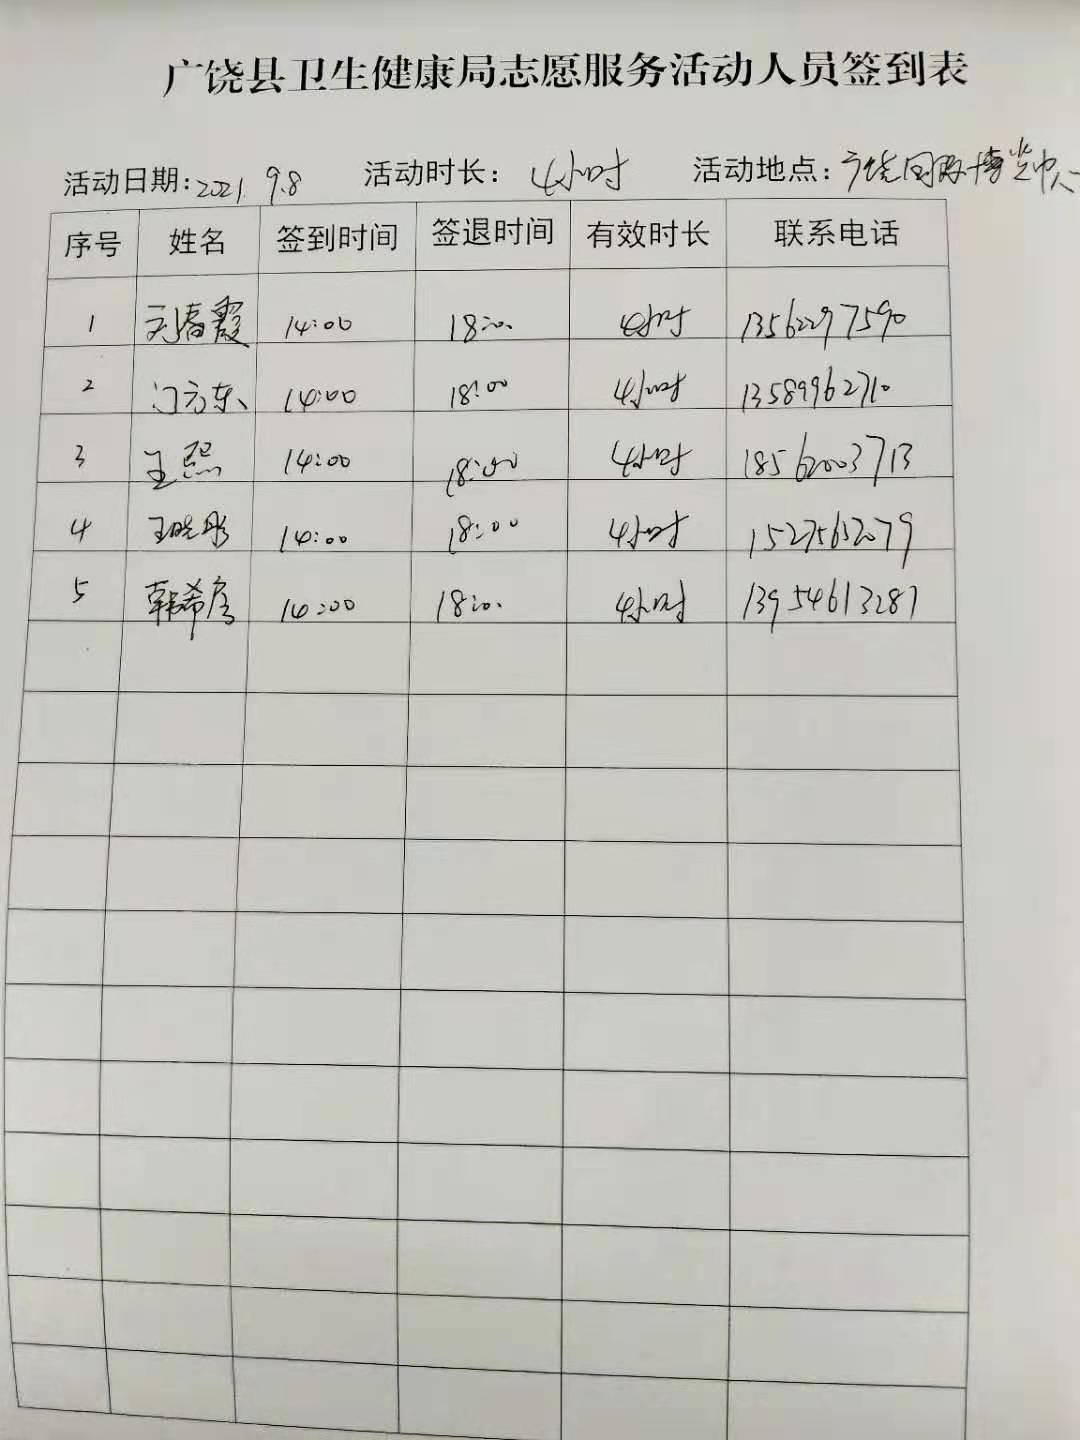 广饶县卫生健康局志愿服务活动人员签到表
活动日期：2021.9.8 活动时长：4小时 活动地点：广饶国际博览中心
序号 姓名 签到时间 签退时间 有效时长 联系电话
1 刘春霞 14:00 18:00 4小时 13562297590
2 门方东 14:00 18:00 4小时 13589962710
3 王熙 14:00 18:00 4小时 18562003713
4 王晓彤 14:00 18:00 4小时 15275652079
5 韩希 14:00 18:00 4小时 13954613287